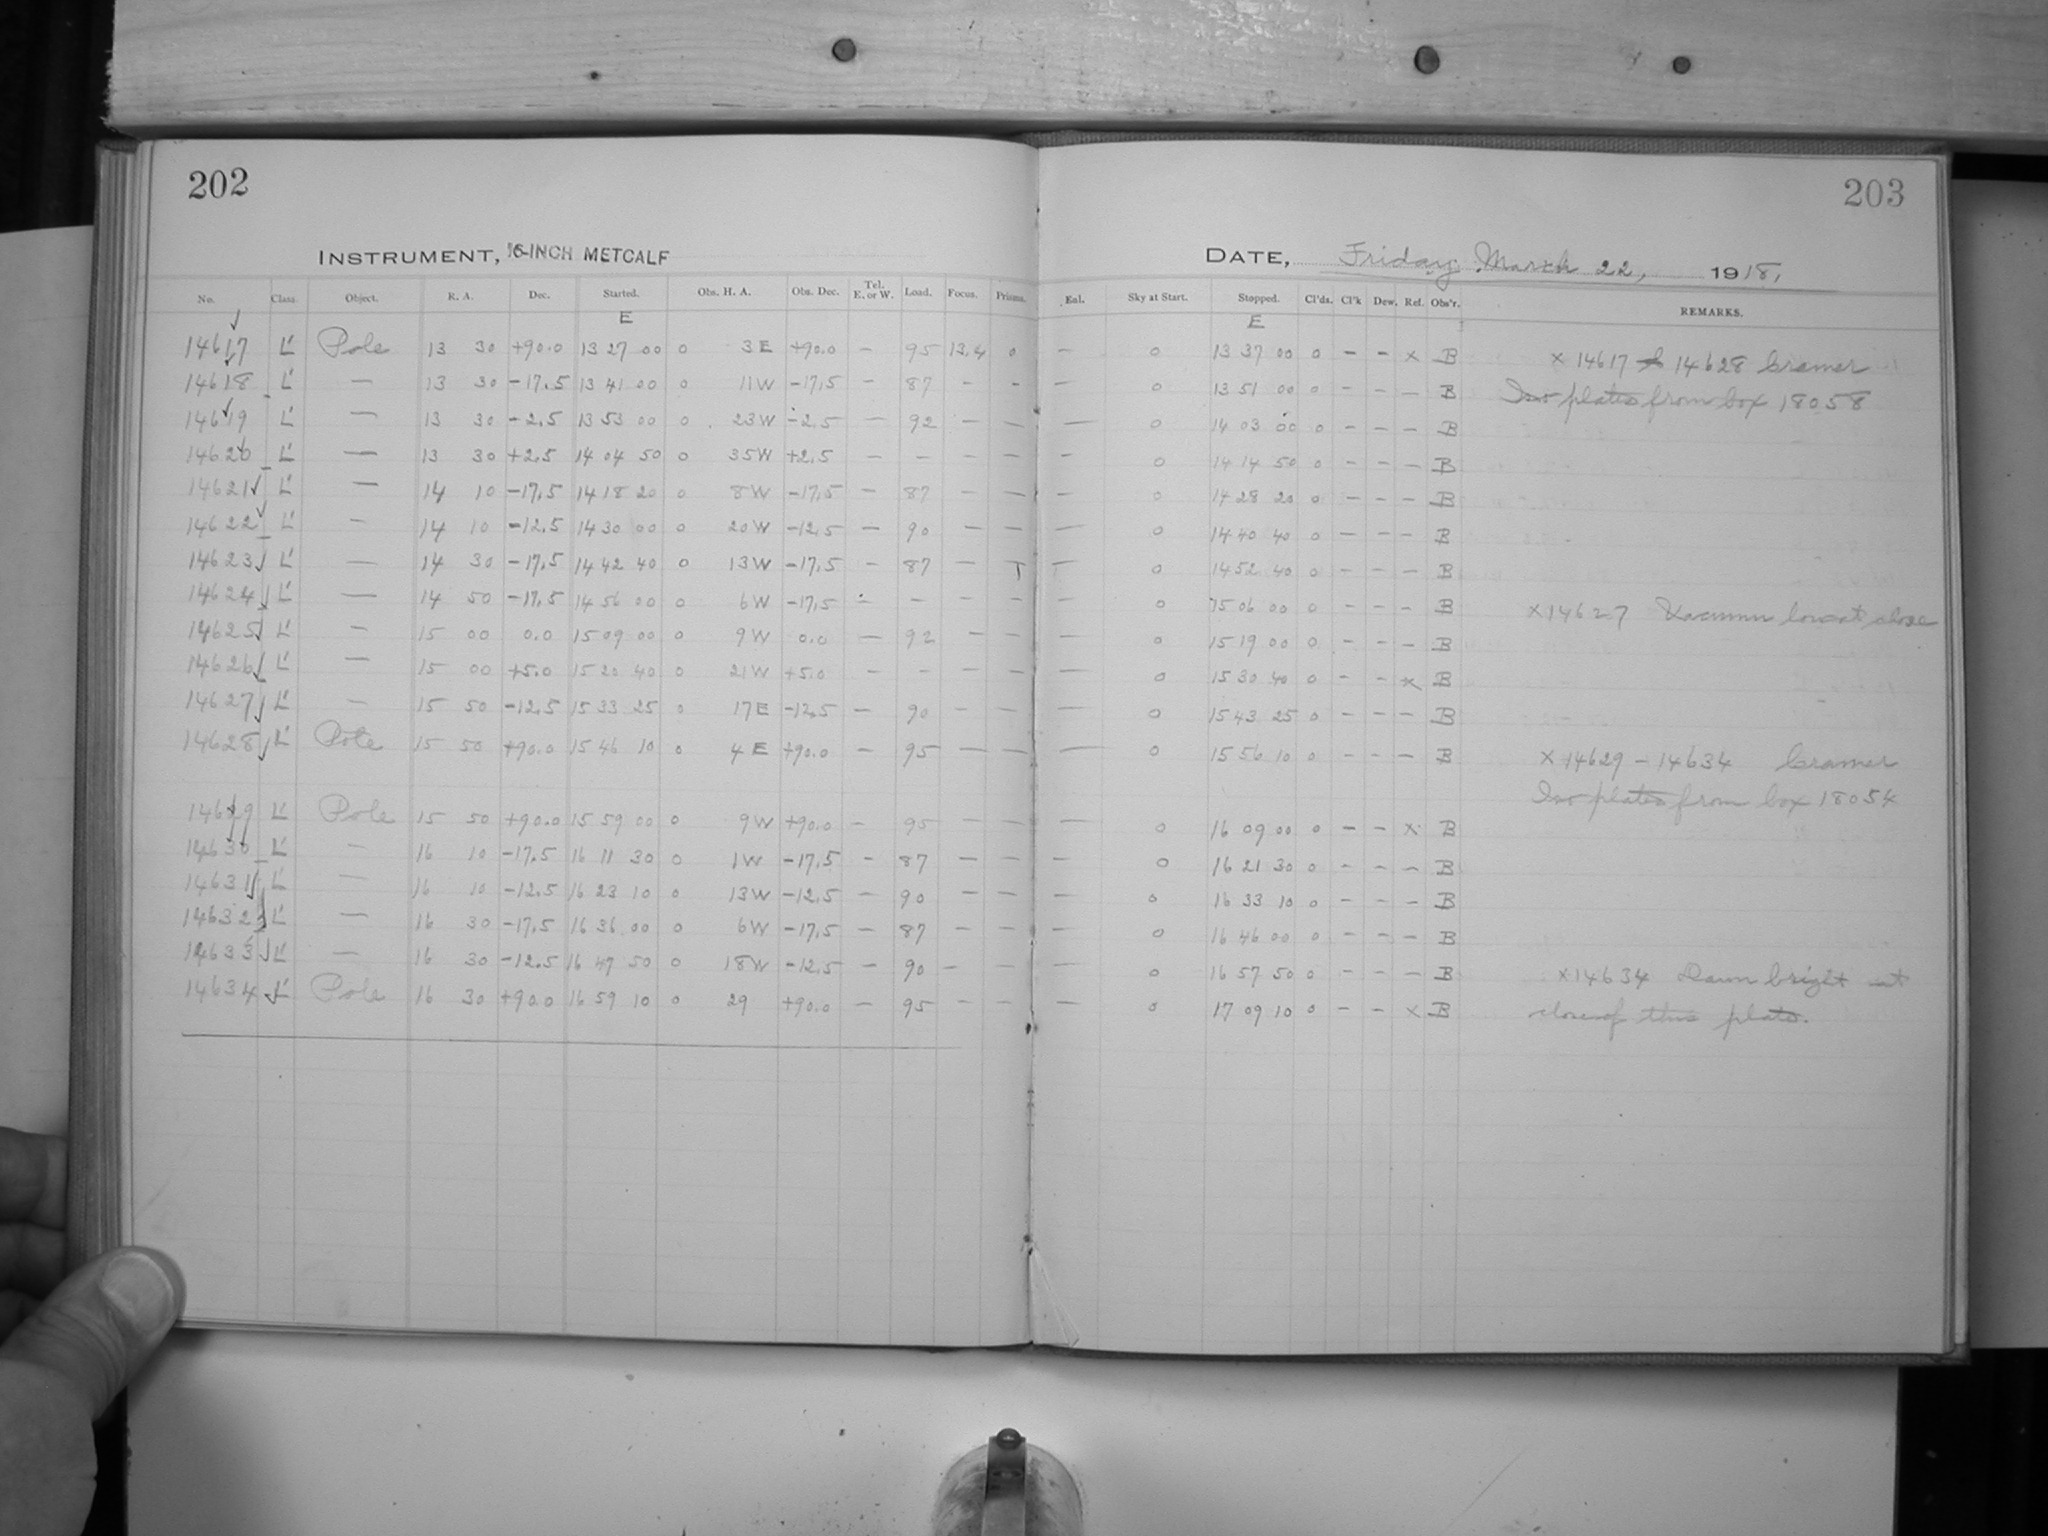 202
203
INSTRUMENT, 16-INCH METCALF
DATE, Friday March 22, 1918,
No. Class. Object. R. A. Dec. Started. Obs. H. A. Obs. Dec. Tel. E. or W. Load. Focus. Prisms. Enl. Sky at Start. Stopped. Cl'ds. Cl'k Dew. Ref. Obs'r. REMARKS.
E E
14617 L' Pole 13 30 +90.0 13 27 00 0 3 E +90.0 — 95 13.4 0 — 0 13 37 00 0 — — x B x 14617 & 14628 Cramer
14618 L' — 13 30 -17.5 13 41 00 0 11 W -17.5 — 87 — — — 0 13 51 00 0 — — — B Iso plates from box 18058
14619 L' — 13 30 -2.5 13 53 00 0 23 W -2.5 — 92 — — — 0 14 03 00 0 — — — B
14620 L' — 13 30 +2.5 14 04 50 0 35 W +2.5 — — — — — 0 14 14 50 0 — — — B
14621 L' — 14 10 -17.5 14 18 20 0 8 W -17.5 — 87 — — — 0 14 28 20 0 — — — B
14622 L' — 14 10 -12.5 14 30 00 0 20 W -12.5 — 90 — — — 0 14 40 40 0 — — — B
14623 L' — 14 30 -17.5 14 42 40 0 13 W -17.5 — 87 — — — 0 14 52 40 0 — — — B
14624 L' — 14 50 -17.5 14 56 00 0 6 W -17.5 — — — — — 0 15 06 00 0 — — — B x 14627 Vacuum low at close
14625 L' — 15 00 0.0 15 09 00 0 9 W 0.0 — 92 — — — 0 15 19 00 0 — — — B
14626 L' — 15 00 +5.0 15 20 40 0 21 W +5.0 — — — — — 0 15 30 40 0 — — x B
14627 L' — 15 50 -12.5 15 33 25 0 17 E -12.5 — 90 — — — 0 15 43 25 0 — — — B
14628 L' Pole 15 50 +90.0 15 46 10 0 4 E +90.0 — 95 — — — 0 15 56 10 0 — — — B x 14629 - 14634 Cramer
Iso plates from box 18054
14629 L' Pole 15 50 +90.0 15 59 00 0 9 W +90.0 — 95 — — — 0 16 09 00 0 — — x B
14630 L' — 16 10 -17.5 16 11 30 0 1 W -17.5 — 87 — — — 0 16 21 30 0 — — — B
14631 L' — 16 10 -12.5 16 23 10 0 13 W -12.5 — 90 — — — 0 16 33 10 0 — — — B
14632 L' — 16 30 -17.5 16 36 00 0 6 W -17.5 — 87 — — — 0 16 46 00 0 — — — B
14633 L' — 16 30 -12.5 16 47 50 0 18 W -12.5 — 90 — — — 0 16 57 50 0 — — — B x 14634 Dawn bright at
14634 L' Pole 16 30 +90.0 16 59 10 0 29 +90.0 — 95 — — — 0 17 09 10 0 — — x B close of this plate.